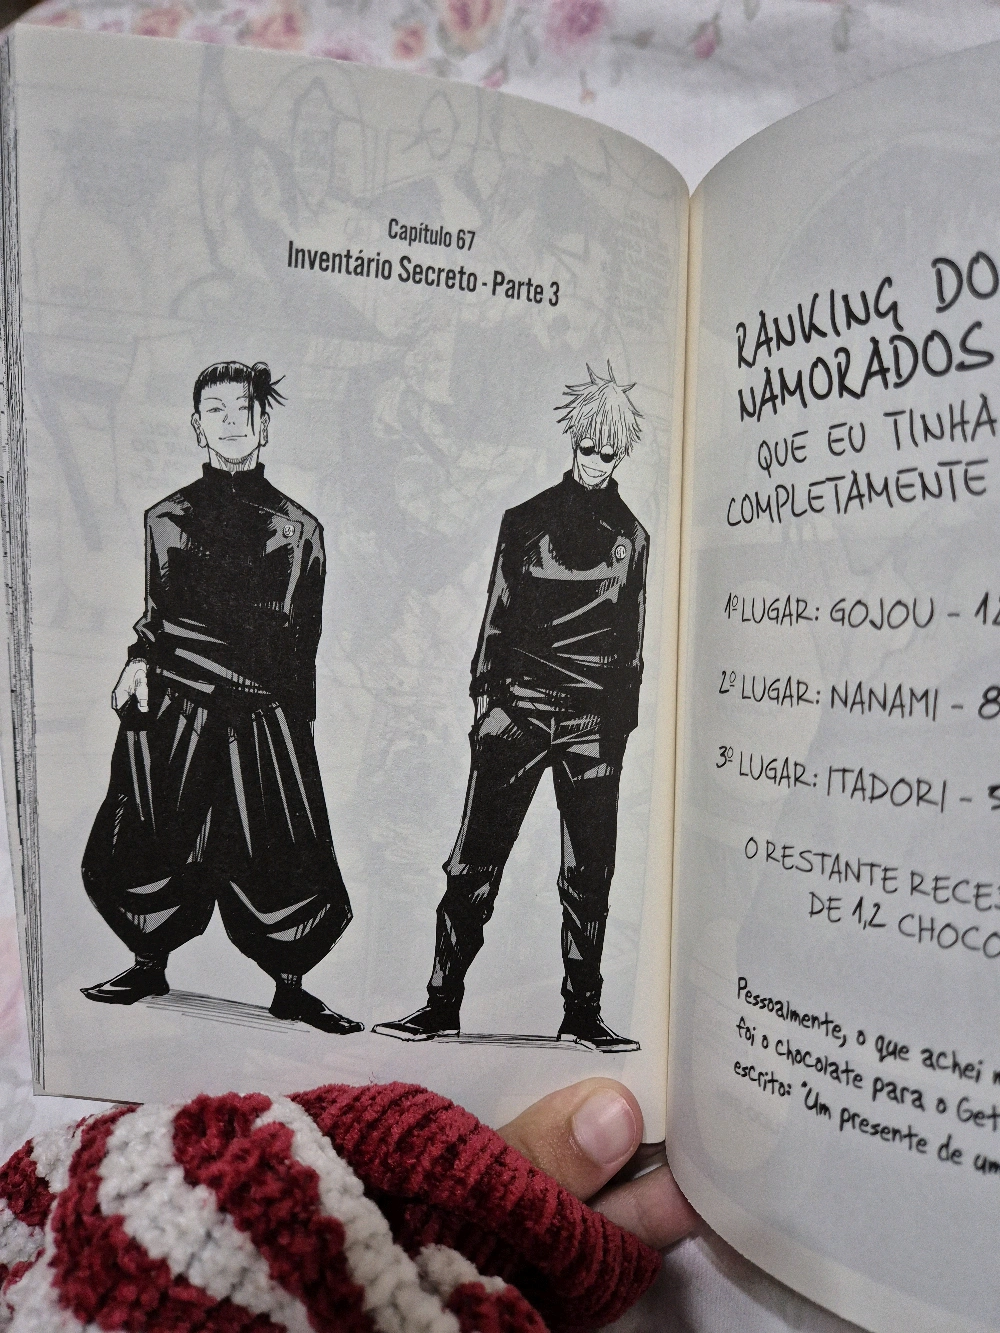 Capítulo 67
Inventário Secreto - Parte 3
RANKING DO
NAMORADOS
QUE EU TINHA
COMPLETAMENTE
1º LUGAR: GOJOU -
2º LUGAR: NANAMI - 8
3º LUGAR: ITADORI -
O RESTANTE
DE 1,2
Pessoalmente, o que achei
foi o chocolate para o
escrito: "Um presente de